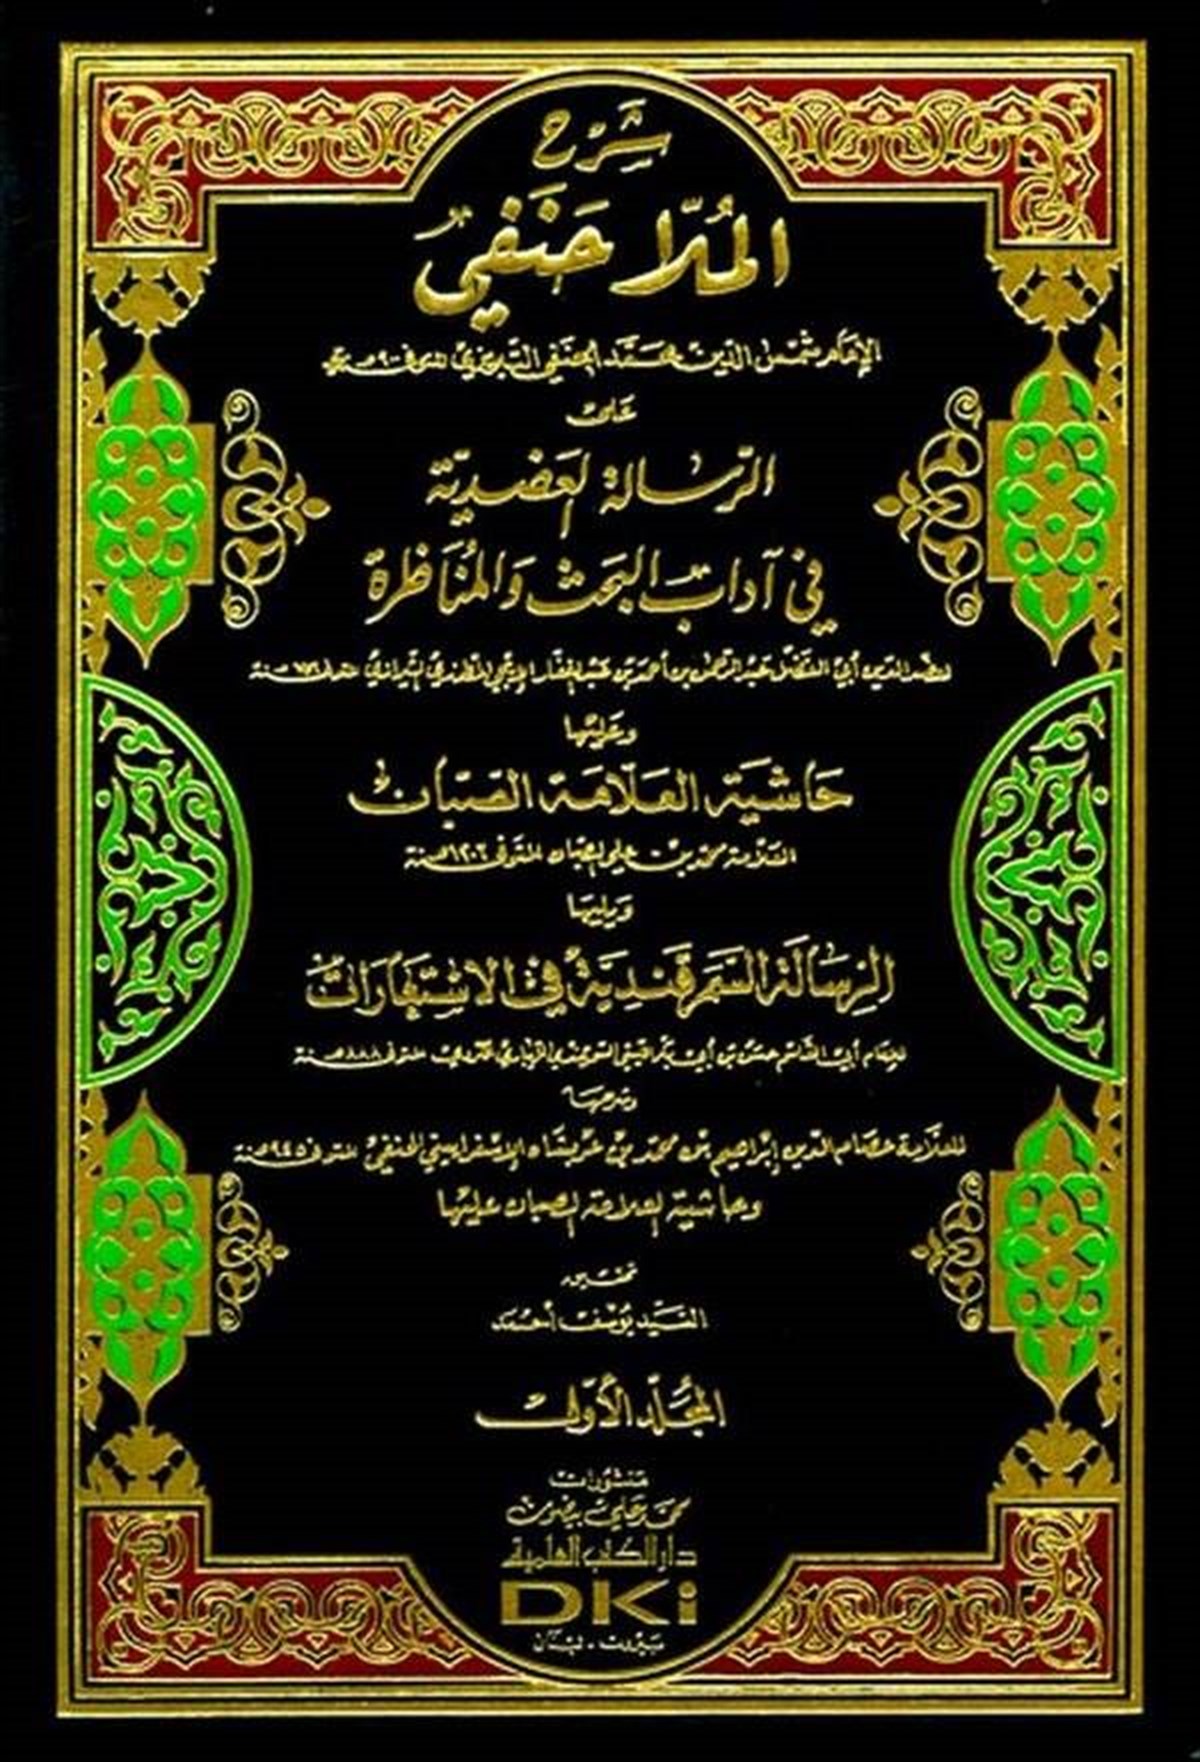 شرح
المُلّا حَنَفي
الإمام شمس الدين محمد الحنفي التبريزي المتوفى ٩٠٠ هـ
على
الرّسالة العَضُديّة
في آداب البَحث وَالمُنَاظرة
لعضد الدين أبي الفضل عبد الرحمٰن بن أحمد بن عبد الغفار الإيجي الشيرازي المتوفى ٧٥٦ سنة هـ
وعليها
حَاشية العَلّامة الصّبان
العلّامة محمّد بن علي الصبان المتوفى سنة ١٢٠٦ هـ
ويليها
الرسَالَة السَّمَرقندِيّة في الاسْتِعَارَات
للإمام أبي القاسم بن أبي بكر الليثي السمرقندي المتوفى سنة ٨٨٨ هـ
وشرحها
للعلّامة عصام الدين إبراهيم بن محمّد بن عربشاه الإسفراييني الحنفي المتوفى سنة ٩٤٥ هـ
وحاشية العلامة الصبان عليها
تحقيق
السّيّد يُوسُف أحمَد
المجُلّد الأوّل
منشورات
محمّد علي بيضون
دار الكتب العلمية
DKi
بيروت - لبنان